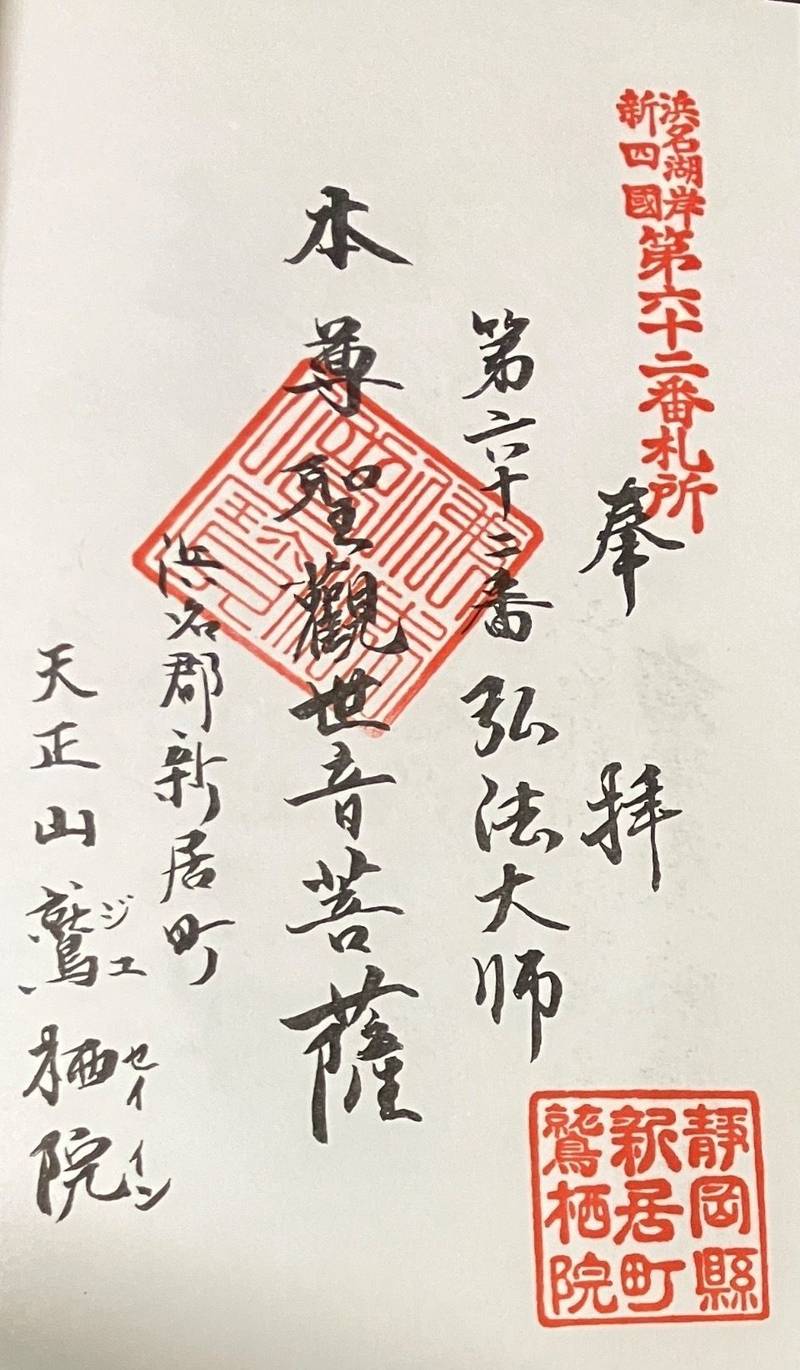 浜名湖岸
新四國
第六十二番札所
奉拝
第六十二番弘法大师
本尊聖觀世音菩薩
浜名郡新居町
天正山鷲栖院
ジエセイイン
靜岡縣
新居町
鷲栖院